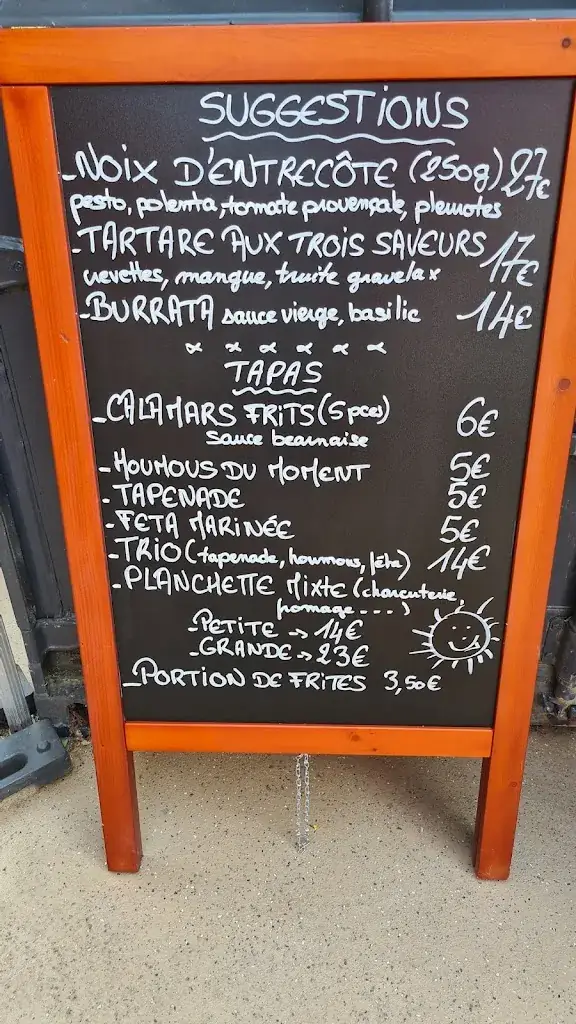 SUGGESTIONS
-NOIX D'ENTRECÔTE (250g) 27€
pesto, polenta, tomate provençale, pleurotes
-TARTARE AUX TROIS SAVEURS 17€
crevettes, mangue, truite gravelax
-BURRATA sauce vierge, basilic 14€
TAPAS
-CALAMARS FRITS (5 pces) 6€
sauce bearnaise
-HOUMOUS DU MOMENT 5€
-TAPENADE 5€
-FETA MARINÉE 5€
-TRIO (tapenade, houmous, féta) 14€
-PLANCHETTE MIXTE (charcuterie,
fromage ---)
-PETITE -> 14€
-GRANDE -> 23€
-PORTION DE FRITES 3,50€